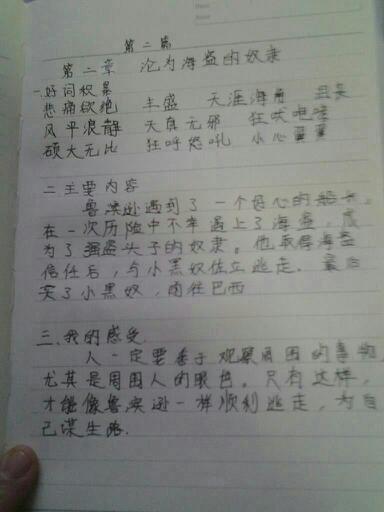 第二篇
第二章 沦为海盗的奴隶
一好词积累
悲痛欲绝 丰盛 天涯海角
风平浪静 天真无邪 狂吠咆哮
硕大无比 狂呼怒吼 小心翼翼
二主要内容
鲁滨逊遇到了一个好心的船长
在一次历险中不幸遇上了海盗，成
为了海盗头子的奴隶。他取得海盗
信任后，与小黑奴佐立逃走。最后
卖了小黑奴，前往巴西
三.我的感受
人一定要善于观察周围的事物
尤其是周围人的眼色。只有这样，
才能像鲁滨逊一样顺利逃走，为自
己谋生路.